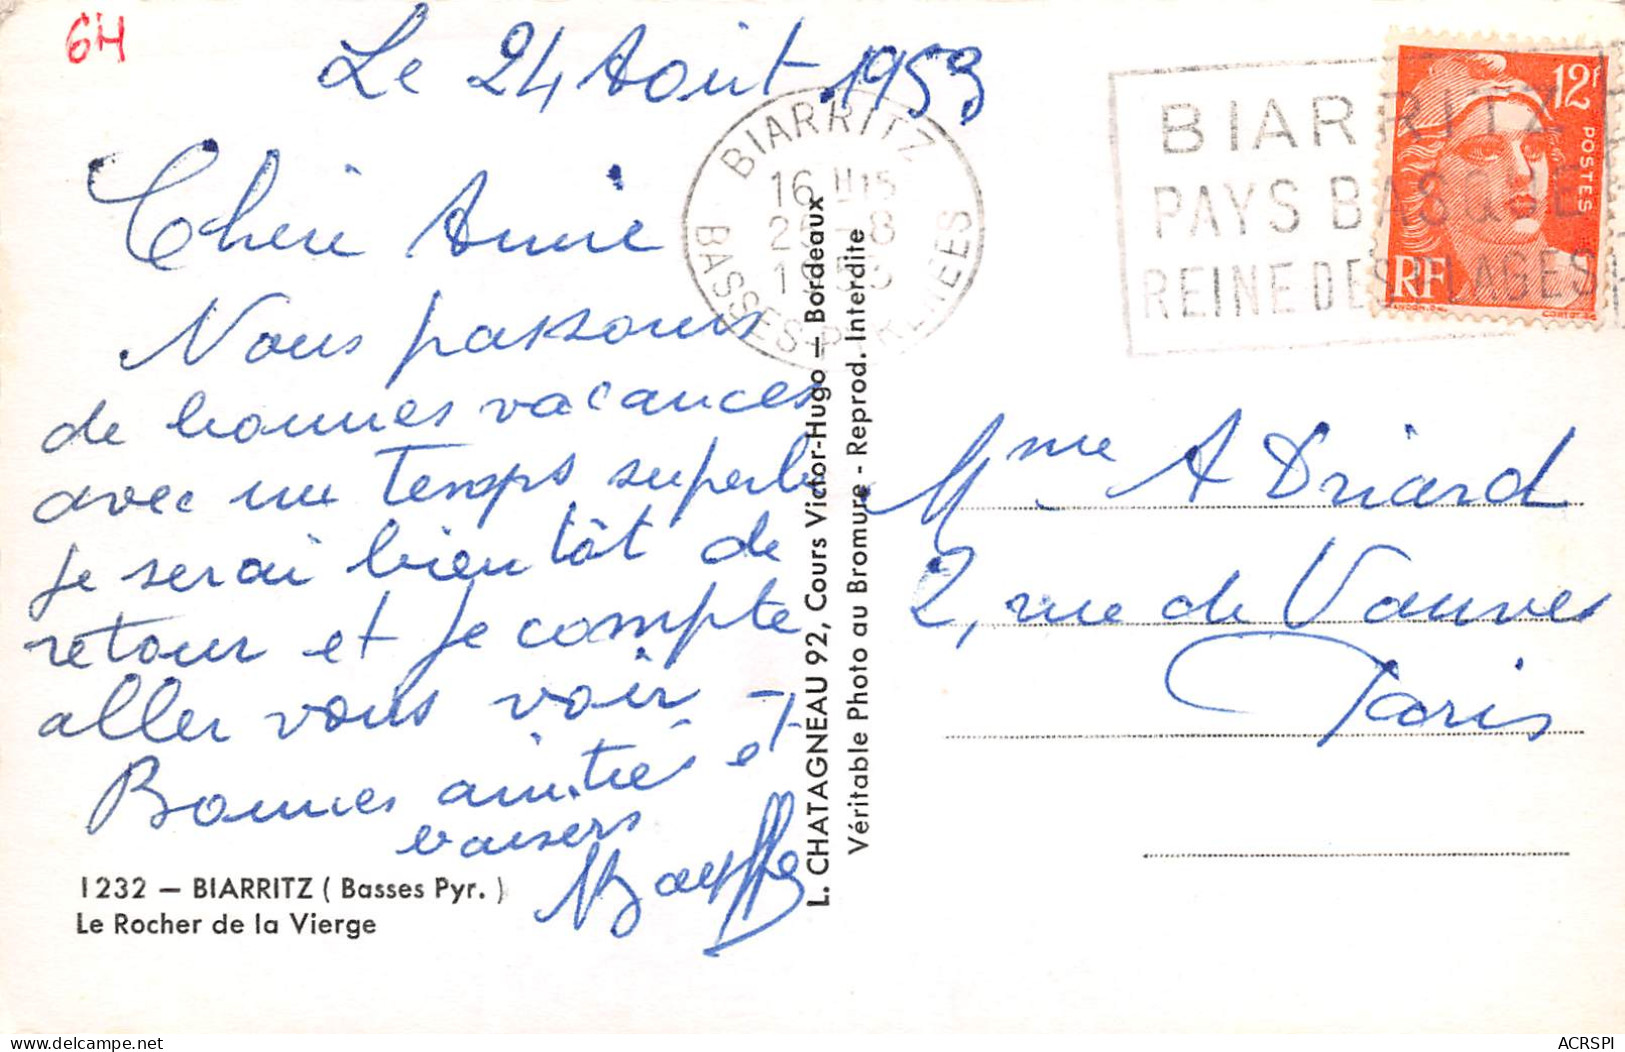 64
Le 24 Août 1953
Chère Amie
Nous passons
de bonnes vacances
avec un temps superbe
je serai bientôt de
retour et je compte
aller vous voir -
Bonnes amitiés et
baisers
1232 — BIARRITZ ( Basses Pyr. )
Le Rocher de la Vierge
L. CHATAGNEAU 92, Cours Victor-Hugo — Bordeaux
Véritable Photo au Bromure - Reprod. Interdite
BIARRITZ
16 H 15
-8
BASSES-PYRENEES
BIARRITZ
PAYS BASQUE
REINE DES PLAGES
12F
POSTES
RF
Mme A Driard
2, rue de Vanves
Paris
ACRSPI